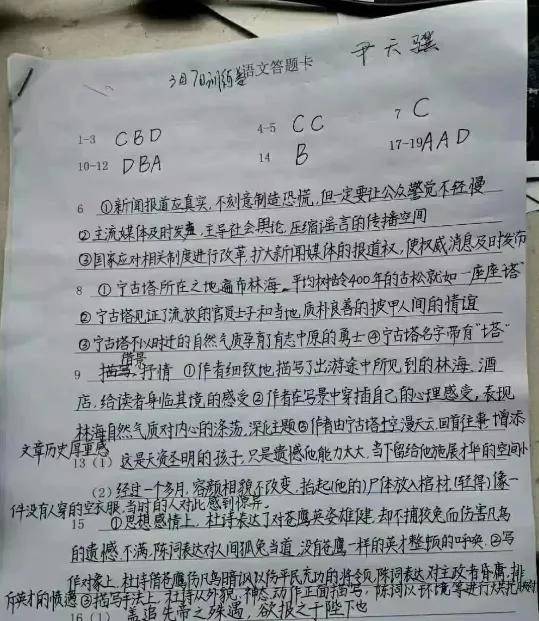 3月7日训练卷语文答题卡 尹天骥
1-3 CBD 4-5 CC 7 C
10-12 DBA 14 B 17-19 AAD
6 ①新闻报道应真实,不刻意制造恐慌,但一定要让公众警觉不轻慢
②主流媒体及时发声,主导社会舆论,压缩谣言的传播空间
③国家应对相关制度进行改革,扩大新闻媒体的报道权,使权威消息及时发布
8 ①宁古塔所在之地遍布林海。平均树龄400年的古松就如一座座"塔"
②宁古塔见证了流放的官员士子和当地,质朴良善的披甲人间的情谊
③宁古塔不以时迁的自然气质孕育了有志中原的勇士④宁古塔名字带有"塔"
9 描写借景抒情 ①作者细致地描写了出游途中所见到的林海、酒
店,给读者身临其境的感受②作者在写景中穿插自己的心理感受,表现
林海自然气质对内心的涤荡,深化主题③作者由宁古塔上空漫天云,回首往事,增添
文章历史厚重感
13(1) 这是天资圣明的孩子,只是遗憾他能力太大,当下留给他施展才华的空间小
(2)经过一个多月,容颜相貌不改变,抬起(他的)尸体放入棺材,(轻得)像一
件没有人穿的空衣服,当时的人对此感到惊异。
15 ①思想感情上,杜诗表达了对苍鹰英姿雄健,却不捕狡兔而伤害凡鸟
的遗憾不满,陈词表达对人间狐兔当道,没有苍鹰一样的英才整顿的呼唤。②写
作对象上,杜诗借苍鹰伤凡鸟暗讽以伤平民充功的将领,陈词表达对主政者昏庸,排
斥英才的愤懑③描写手法上,杜诗从外貌、神态、动作正面描写,陈词以环境等进行
16(1) 盖追先帝之殊遇,欲报之于陛下也